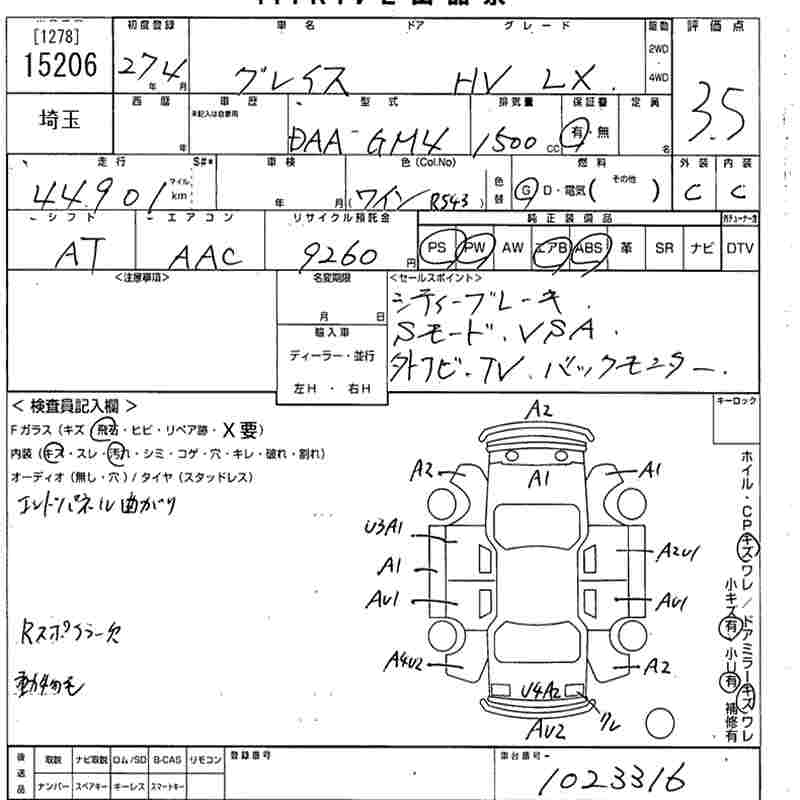 [1278]
15206
埼玉
初度登録
27 4
年 月
車名
ドア
グレード
グレイス HV LX
駆動
2WD
4WD
評価点
3.5
西暦
年
車歴
※記入は自家用
型式
DAA-GM4
排気量
1500
CC
保証書
有・無
定員
名
走行
44,901
マイル
km
S#*
車検
年 月
色(Col.No)
(ワイン R543)
色替
燃料
G D・電気( その他 )
外装
C
内装
C
シフト
AT
エアコン
AAC
リサイクル預託金
9260
円
純正装備品
PS PW AW エアB ABS 革 SR ナビ DTV
<注意事項>
名変期限
月 日
輸入車
ディーラー・並行
左H ・ 右H
<セールスポイント>
シティーブレーキ.
Sモード.VSA.
外ナビ.TV.バックモニター.
<検査員記入欄>
Fガラス(キズ 飛石・ヒビ・リペア跡・X要)
内装(キズ・スレ・汚れ・シミ・コゲ・穴・キレ・破れ・割れ)
オーディオ(無し・穴)/タイヤ(スタッドレス)
エンドパネル曲がり
Rスポイラー欠
動物毛
キーロック
A2
A1
A2
A1
U3A1
A2U1
A1
AU1
AU1
A4U2
A2
U4A2
ワレ
AU2
ホイル・CPキズワレ/ドアミラーキズワレ
小キズ有・小U有 補修有
後送品
取説 ナビ取説 ロム/SD B-CAS リモコン
ナンバー スペアキー キーレス スマートキー
登録番号
車台番号
1023316